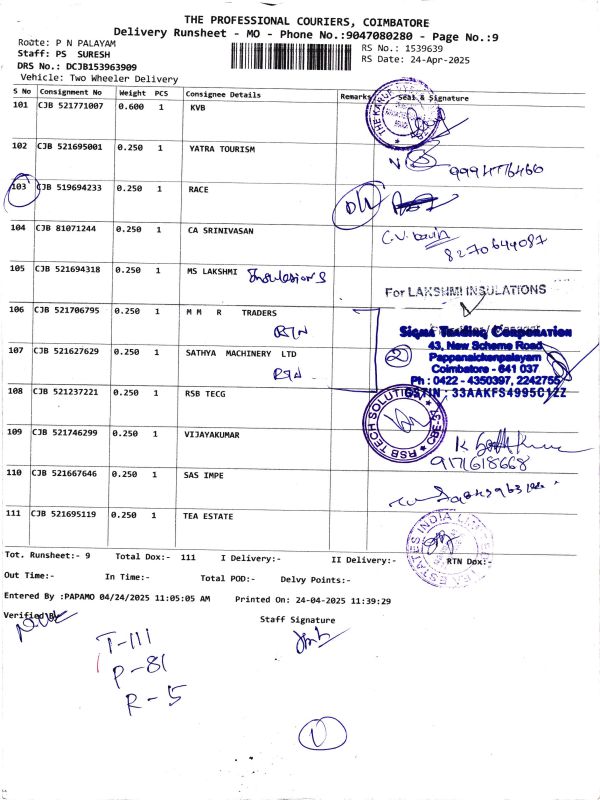 THE PROFESSIONAL COURIERS, COIMBATORE
Delivery Runsheet - MO - Phone No.:9047080280 - Page No.:9
Route: P N PALAYAM
RS No.: 1539639
Staff: PS SURESH
RS Date: 24-Apr-2025
DRS No.: DCJB153963909
Vehicle: Two Wheeler Delivery
S No Consignment No Weight PCS Consignee Details Remarks Seal & Signature
101 CJB 521771007 0.600 1 KVB
102 CJB 521695001 0.250 1 YATRA TOURISM
103 CJB 519694233 0.250 1 RACE
104 CJB 81071244 0.250 1 CA SRINIVASAN
8270644087
105 CJB 521694318 0.250 1 MS LAKSHMI Insulasions
For LAKSHMI INSULATIONS
106 CJB 521706795 0.250 1 M M R TRADERS
RTN
107 CJB 521627629 0.250 1 SATHYA MACHINERY LTD
RTN
2
Sigma Trading Corporation
43, New Scheme Road
Pappanaickenpalayam
Coimbatore - 641 037
Ph : 0422 - 4350397, 2242755
GSTIN : 33AAKFS4995C1ZZ
108 CJB 521237221 0.250 1 RSB TECG
RSB TECH SOLUTION CBE-34
109 CJB 521746299 0.250 1 VIJAYAKUMAR
9171618668
110 CJB 521667646 0.250 1 SAS IMPE
111 CJB 521695119 0.250 1 TEA ESTATE
Tot. Runsheet:- 9 Total Dox:- 111 I Delivery:- II Delivery:- RTN Dox:-
Out Time:- In Time:- Total POD:- Delvy Points:-
Entered By :PAPAMO 04/24/2025 11:05:05 AM Printed On: 24-04-2025 11:39:29
Verified By
Staff Signature
T-111
P-81
R-5
1